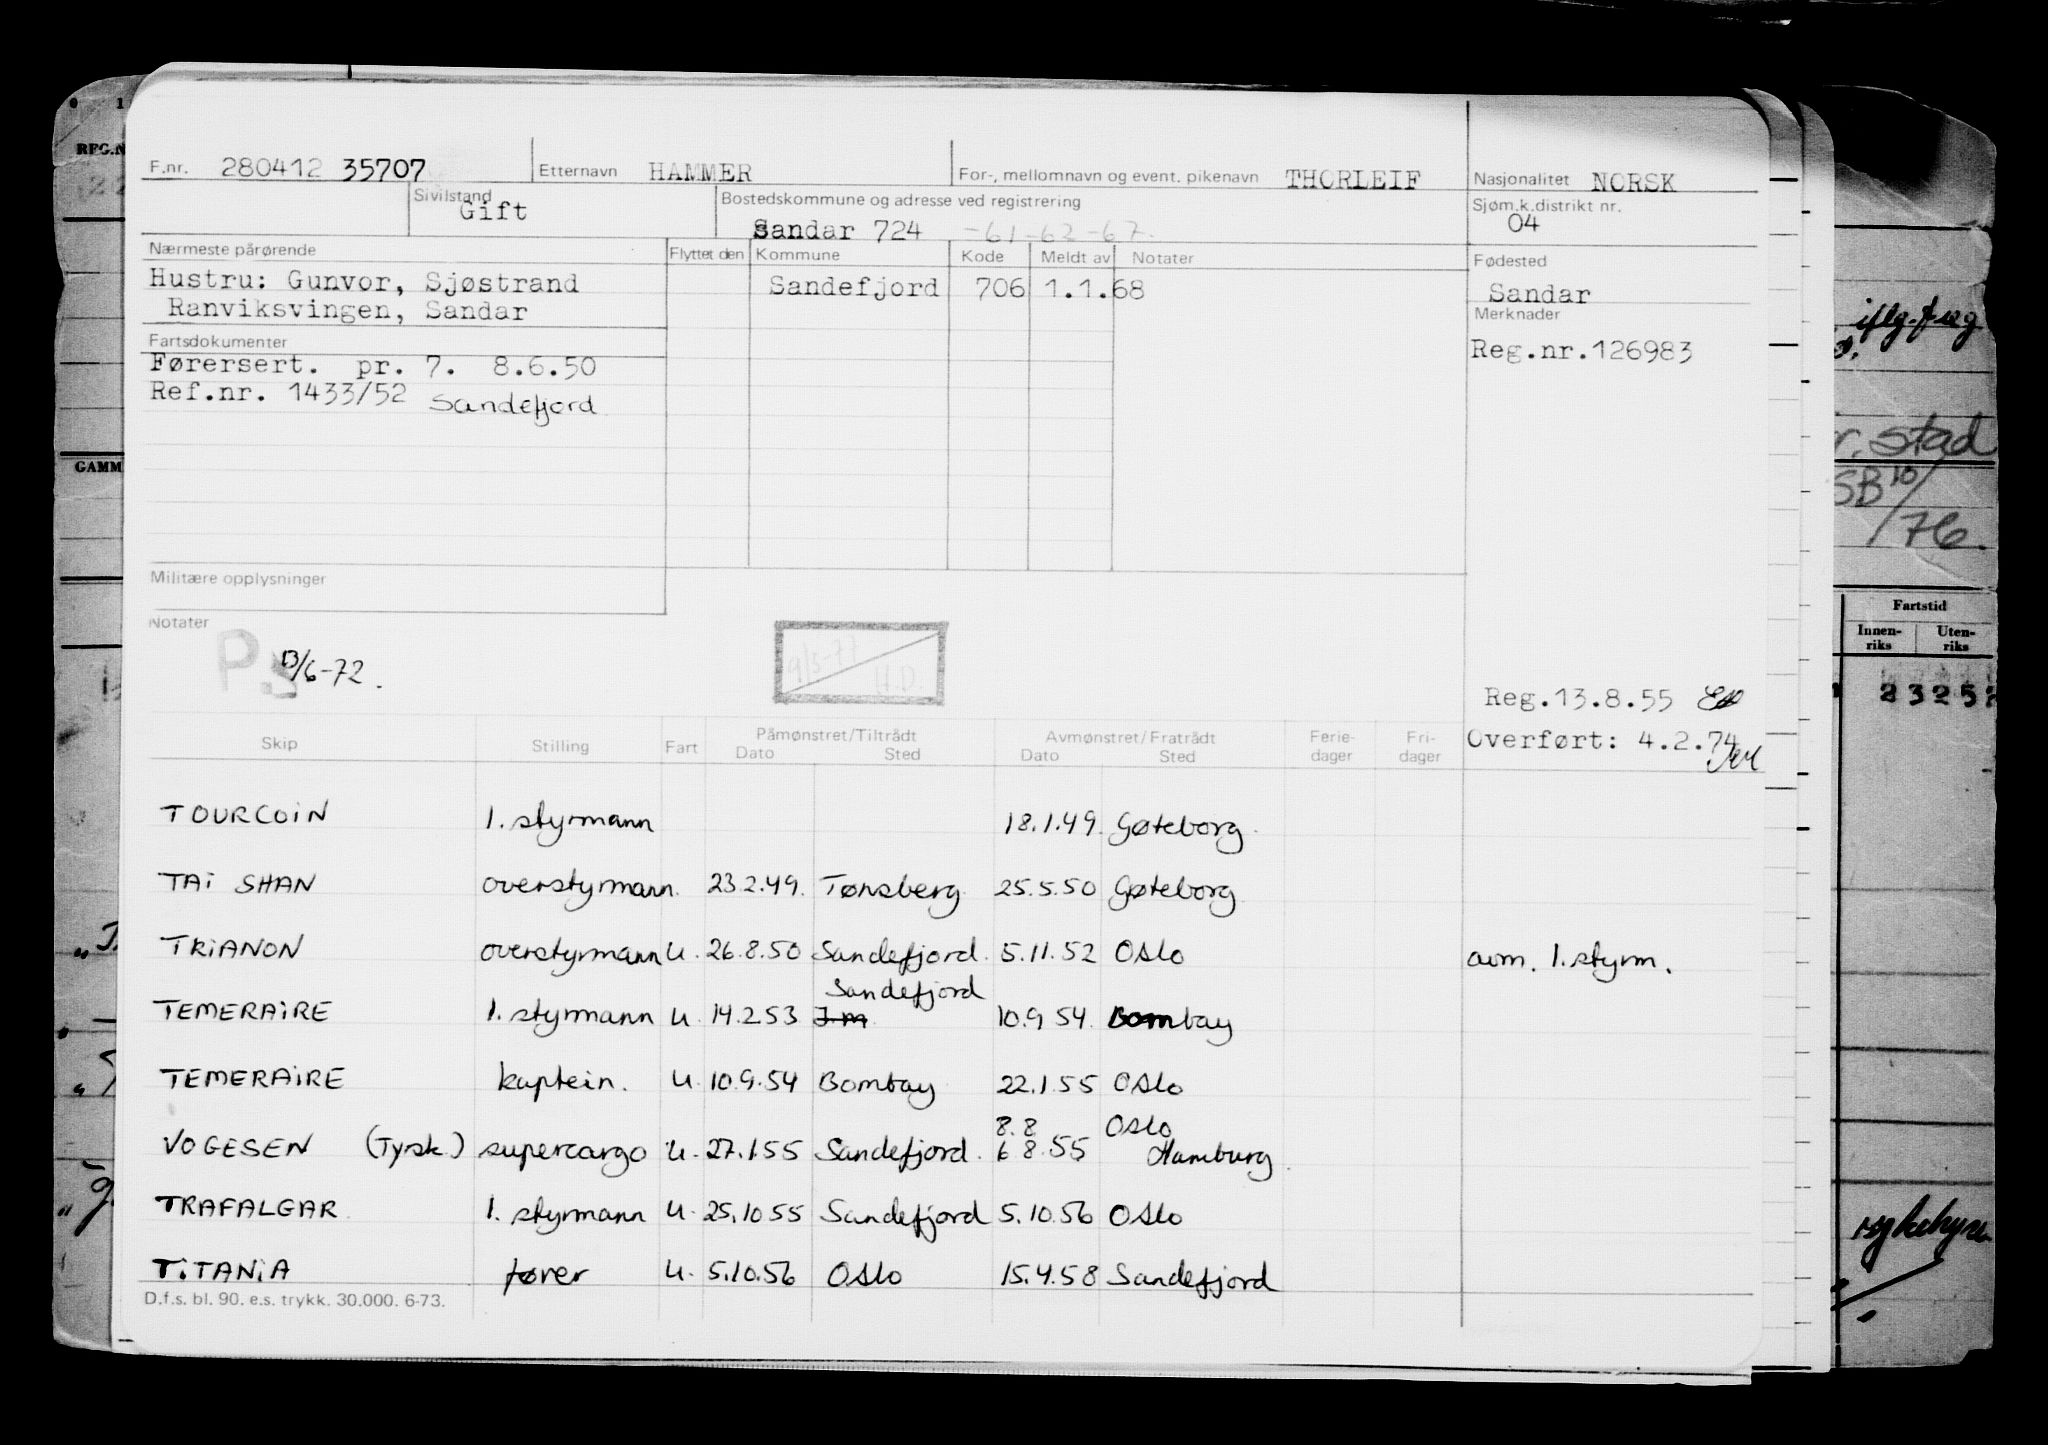 F.nr. 280412 35707 Etternavn HAMMER For-, mellomnavn og event. pikenavn THORLEIF Nasjonalitet NORSK
Sivilstand Gift Bostedskommune og adresse ved registrering Sjøm.k.distrikt nr.
Sandar 724 -61-62-67. 04
Nærmeste pårørende Flyttet den Kommune Kode Meldt av Notater Fødested
Hustru: Gunvor, Sjøstrand Sandefjord 706 1.1.68 Sandar
Ranviksvingen, Sandar Merknader
Fartsdokumenter Reg.nr.126983
Førersert. pr. 7. 8.6.50
Ref.nr. 1433/52 Sandefjord
Militære opplysninger
Notater
13/6-72.
9/3-77 H.D.
Reg.13.8.55
Overført: 4.2.74
Skip Stilling Fart Påmønstret/Tiltrådt Avmønstret/Fratrådt Ferie- Fri-
Dato Sted Dato Sted dager dager
TOURCOIN 1. styrmann 18.1.49. Gøteborg.
TAI SHAN overstyrmann. 23.2.49. Tønsberg 25.5.50 Gøteborg
TRIANON overstyrmann U. 26.8.50 Sandefjord. 5.11.52 Oslo avm. 1.styrm.
Sandefjord
TEMERAIRE 1. styrmann U. 14.2.53 10.9.54. Bombay
TEMERAIRE kaptein. U. 10.9.54 Bombay 22.1.55 Oslo
8.8 Oslo
VOGESEN (Tysk.) supercargo U. 27.1.55 Sandefjord. 6 8.55 Hamburg.
TRAFALGAR 1. styrmann U. 25.10.55 Sandefjord 5.10.56 Oslo
TITANIA fører U. 5.10.56 Oslo 15.4.58 Sandefjord
D.f.s. bl. 90. e.s. trykk. 30.000. 6-73.
GAMM
stad
SB 10/76.
Fartstid
Innen- Uten-
riks riks
2325